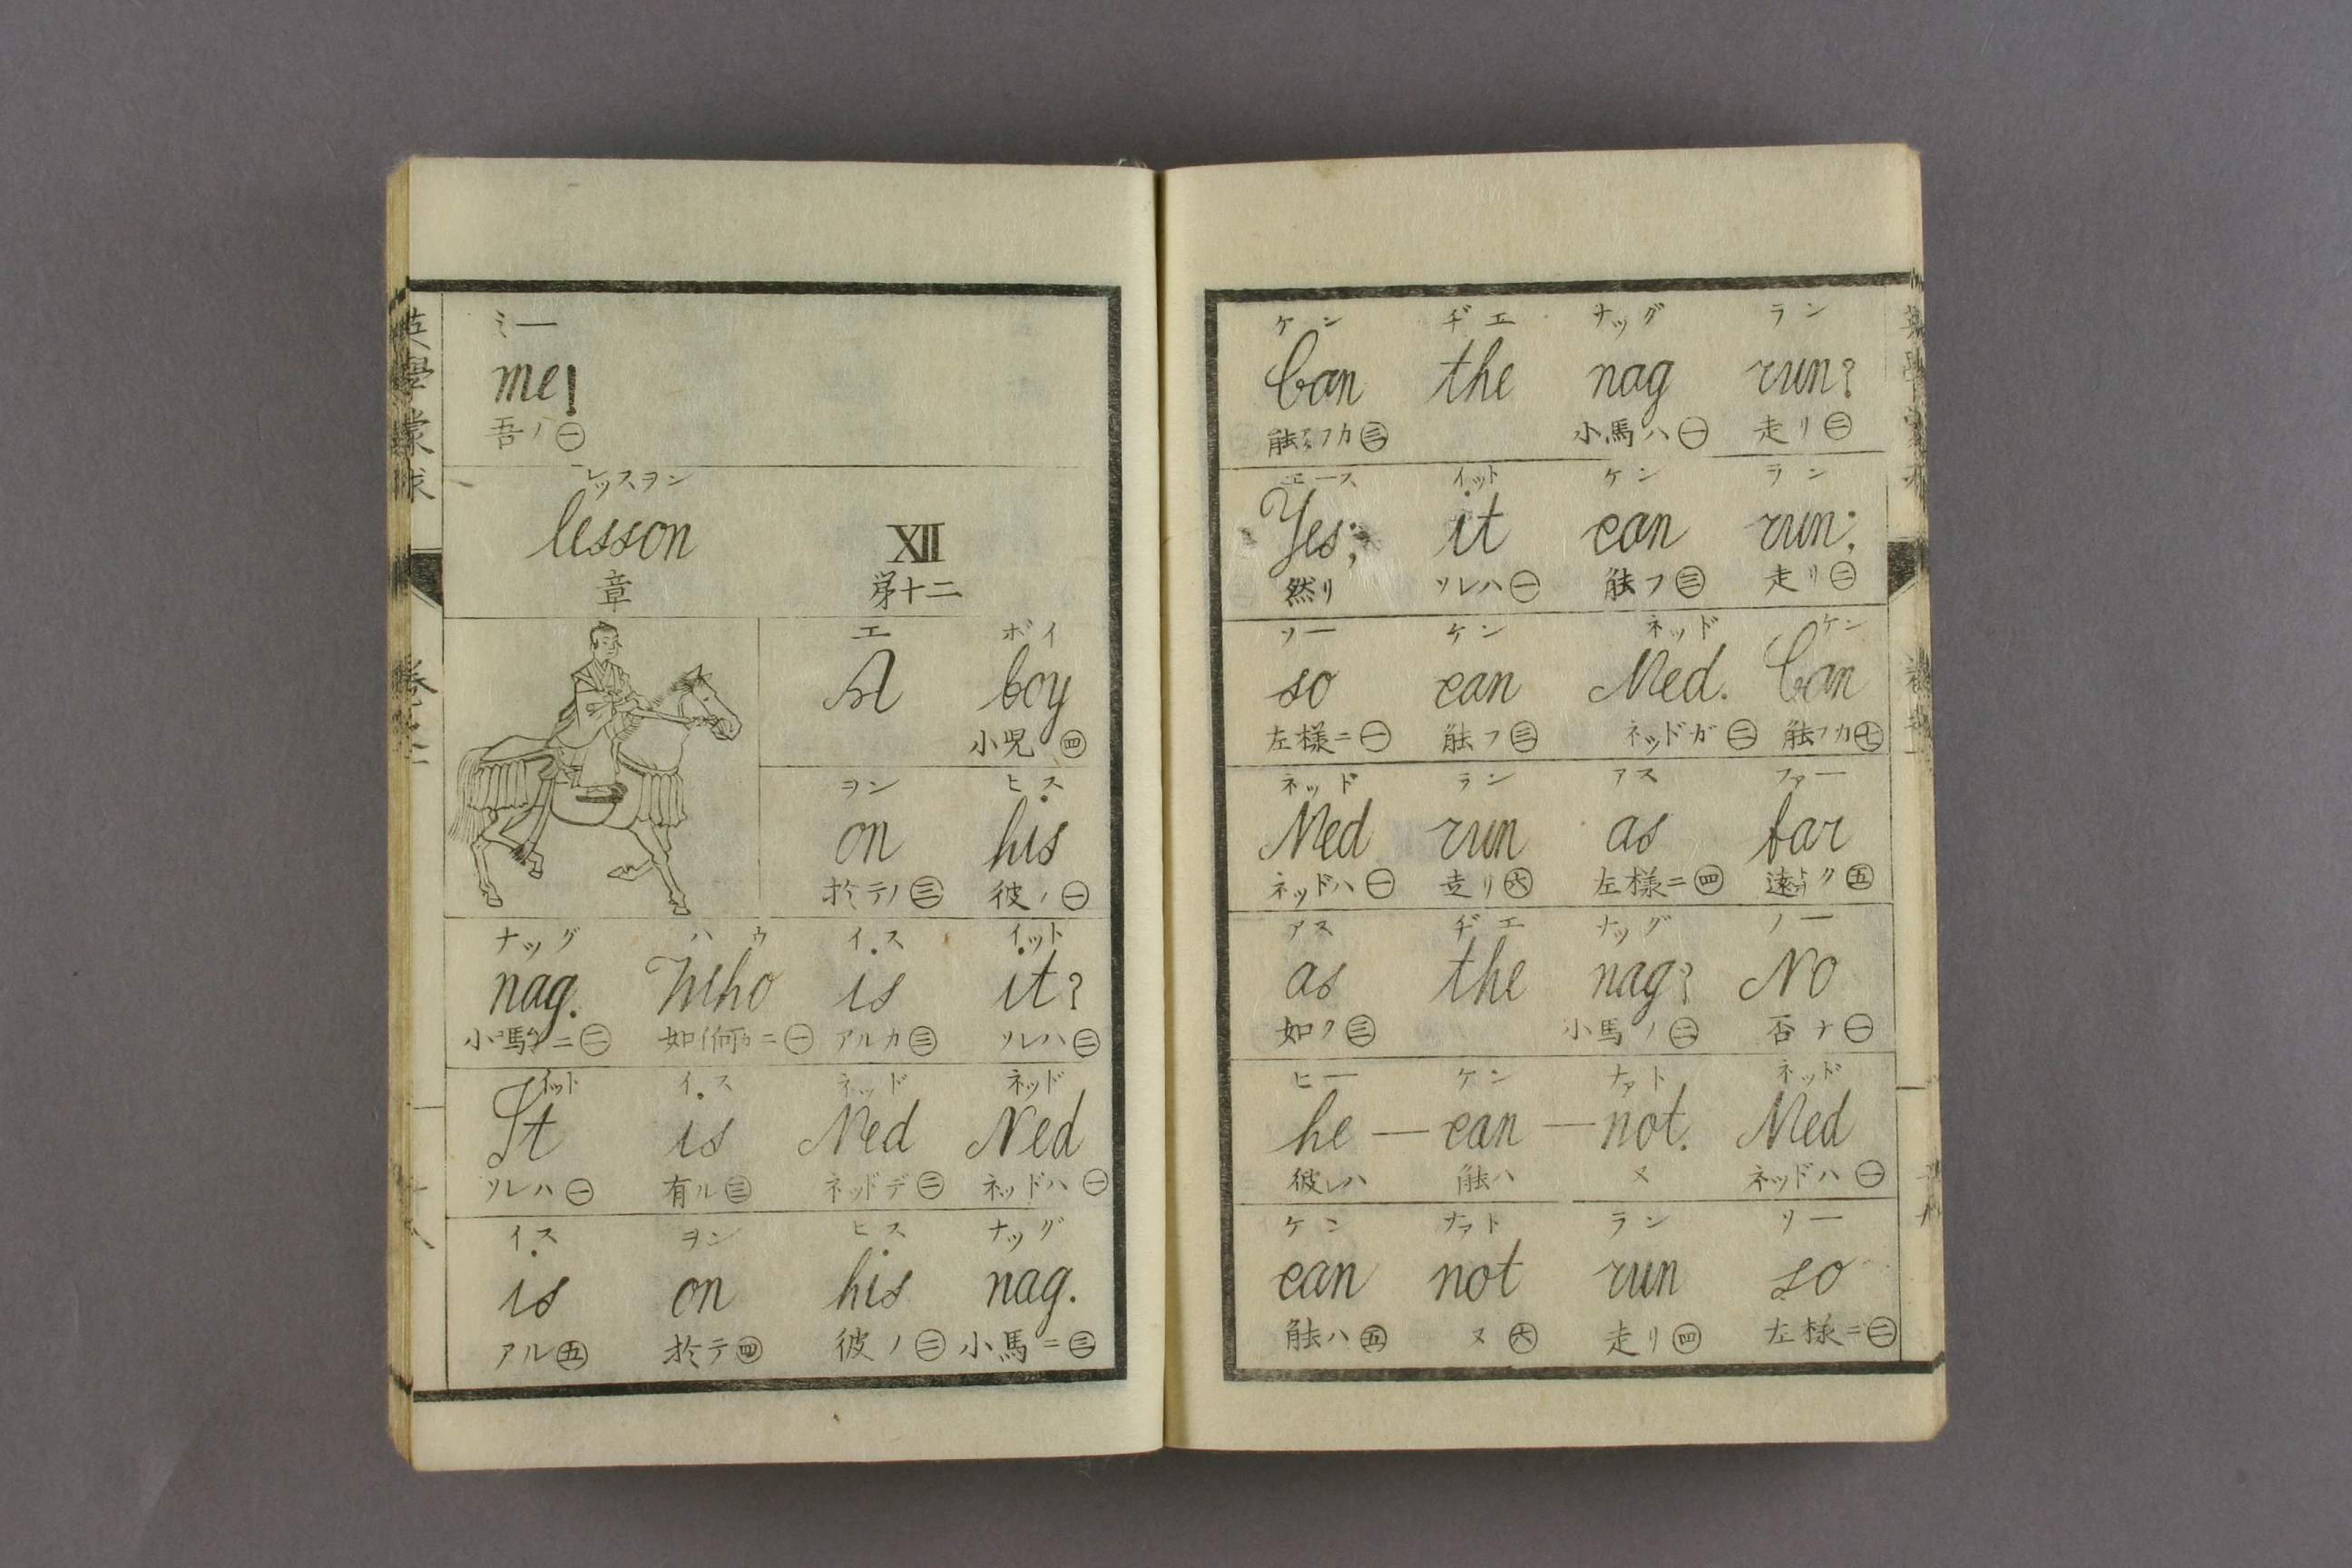 ミー
me!
吾ノ㊀
レッスヲン
lesson XII
章 第十二
エ ボイ
A boy
小児㊃
ヲン ヒス
on his
於テノ㊂ 彼ノ㊀
ナッグ ハウ イス イット
nag. Who is it?
アルカ㊂ ソレハ㊁
イット イス ネッド ネッド
It is Ned Ned
ソレハ㊀ 有ル㊂ ネッドデ㊁ ネッドハ㊀
イス ヲン ヒス ナッグ
is on his nag.
アル㊄ 於テ㊃ 彼ノ㊁ 小馬ニ㊂
ケン ヂエ ナッグ ラン
Can the nag run?
小馬ハ㊀ 走リ㊁
エース イット ケン ラン
Yes; it can run;
然リ ソレハ㊀ 能フ㊂ 走リ㊁
ソー ケン ネッド ケン
so can Ned. Can
左様ニ㊀ 能フ㊂ ネッドガ㊁ 能フカ㊆
ネッド ラン アス ファー
Ned run as far
ネッドハ㊀ 走リ㊅ 左様ニ㊃ 遠ク㊄
アス ヂエ ナッグ ノー
as the nag? No
如ク㊂ 小馬ノ㊁ 否ナ㊀
ヒー ケン ナァト ネッド
he — can — not. Ned
彼レハ 能ハ ヌ ネッドハ㊀
ケン ナァト ラン ソー
can not run so
能ハ㊄ ヌ㊅ 走リ㊃ 左様ニ㊁